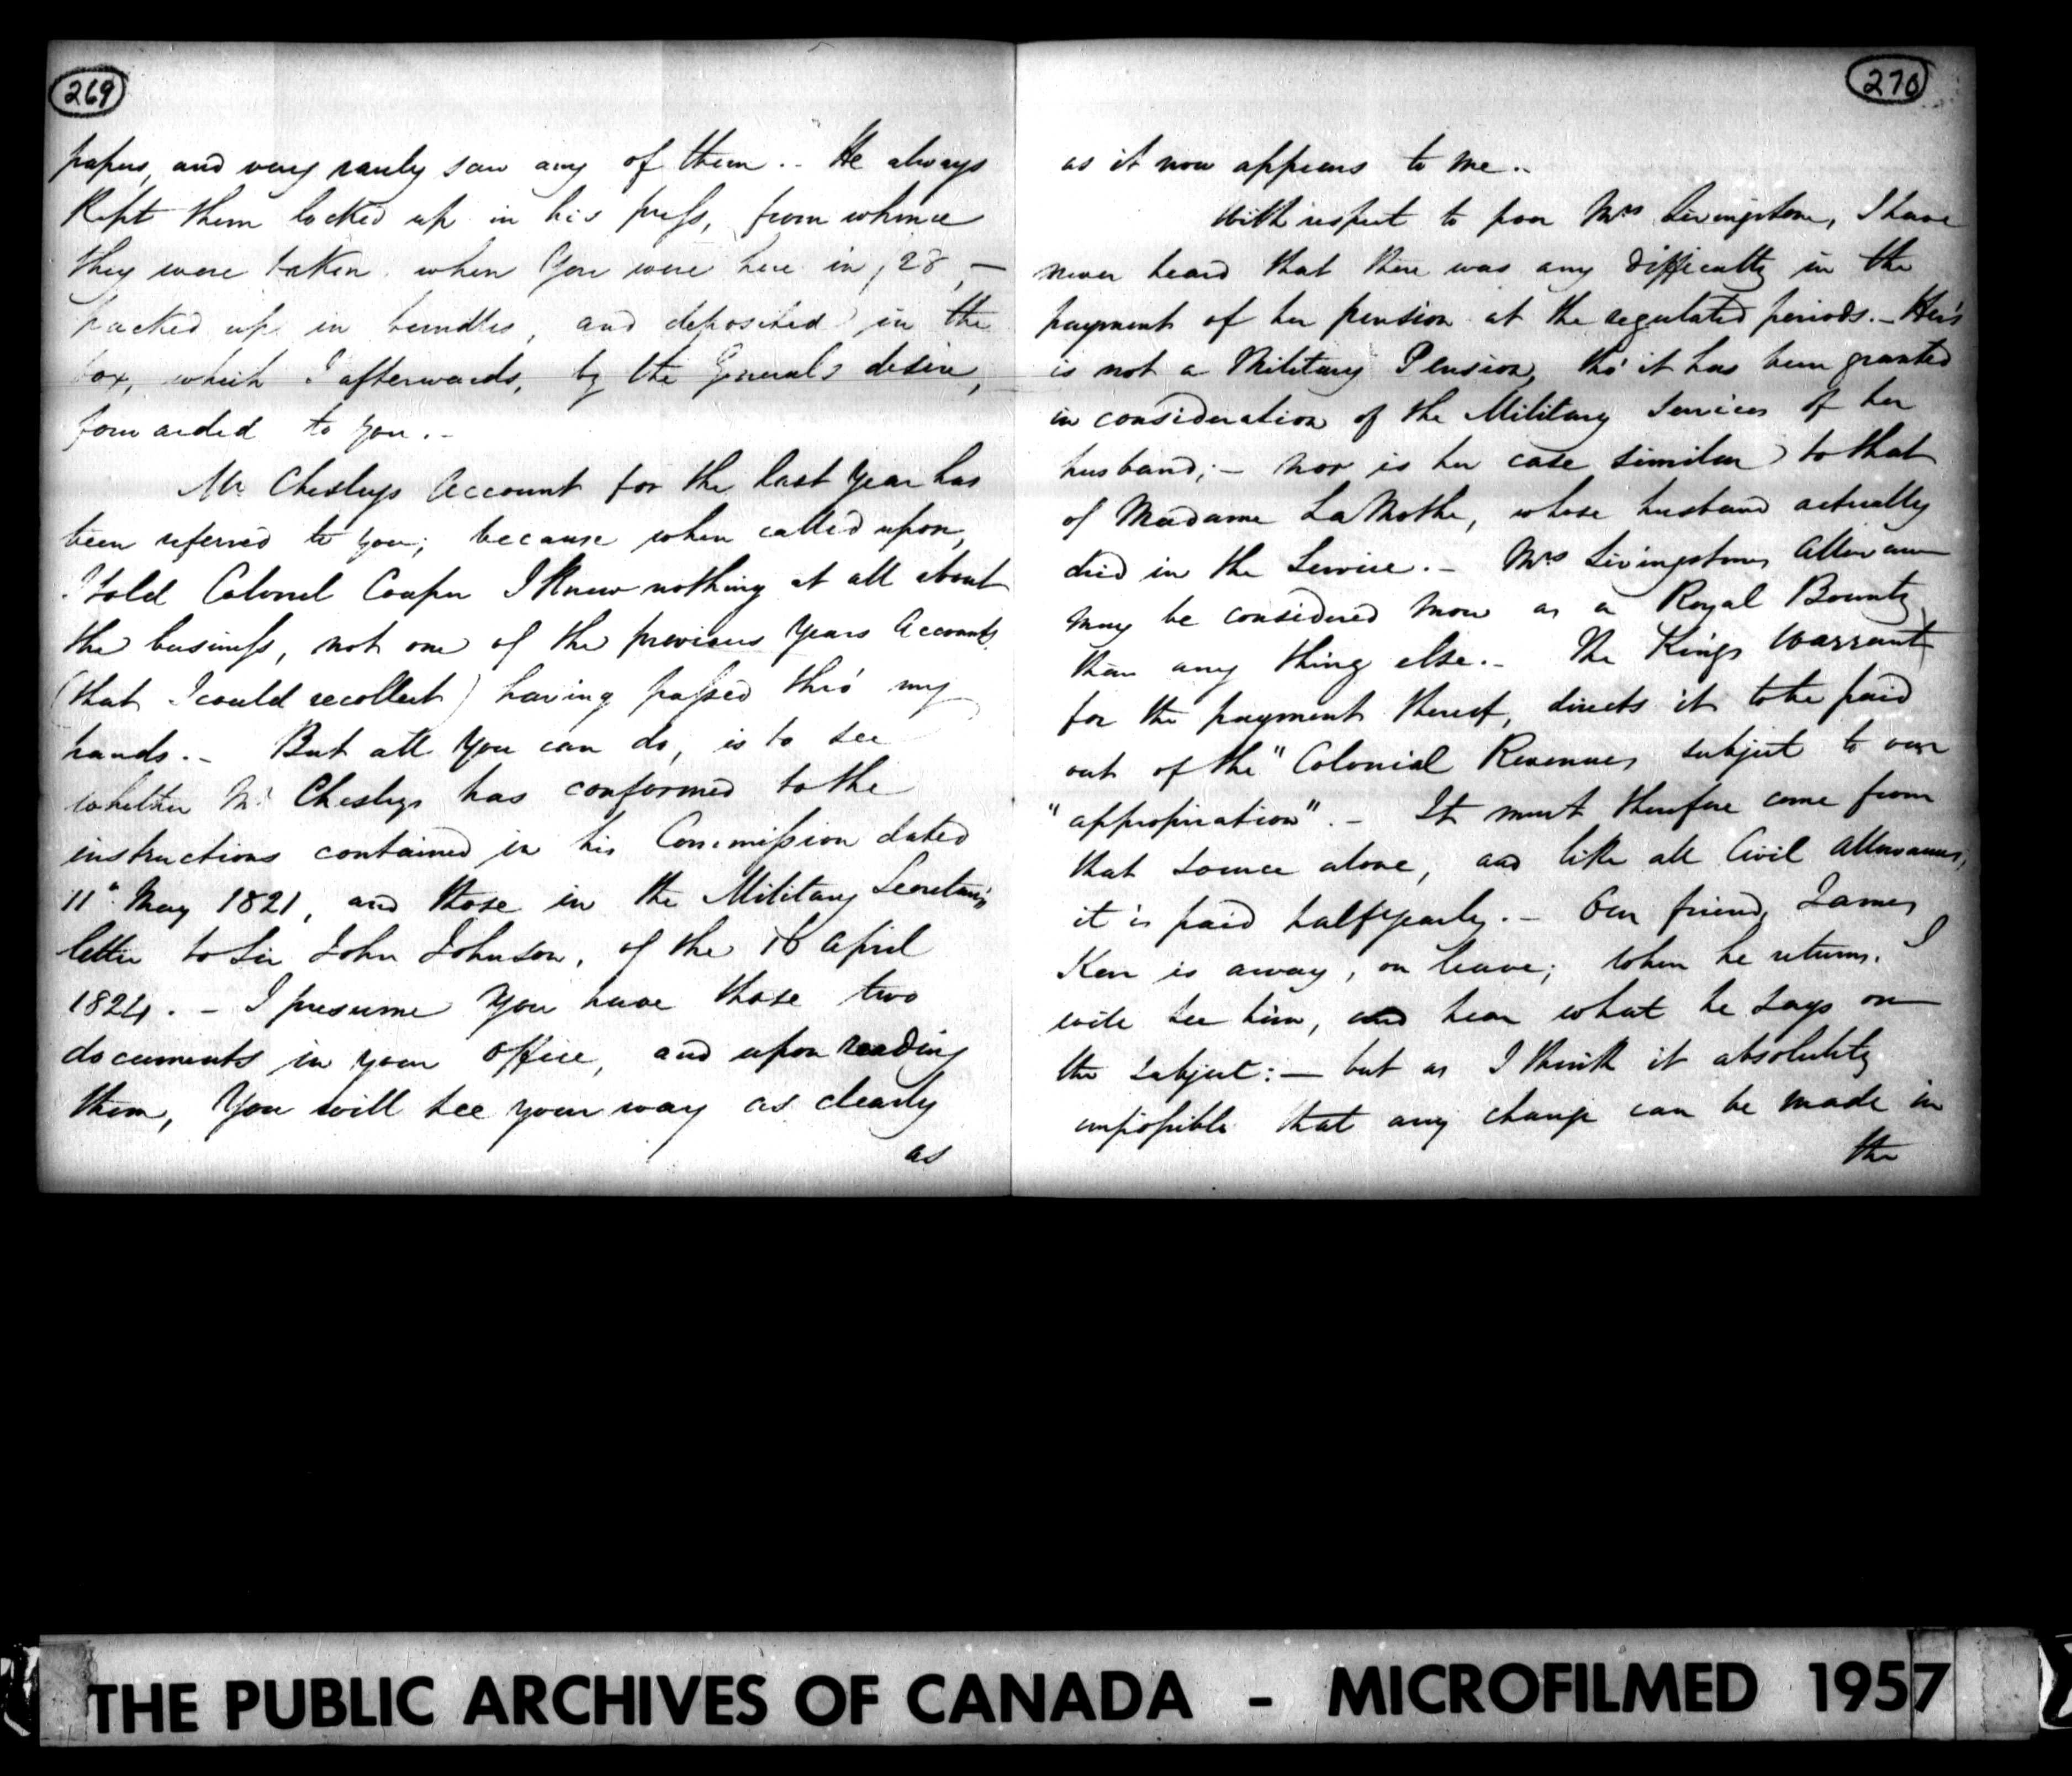 269
papers, and very rarely saw any of them.- He always
kept them locked up in his press, from whence
they were taken when you were here in ,28, —
packed up in bundles, and deposited in the
box, which I afterwards, by the Generals desire,
forwarded to you.-
Mr Chesleys Account for the last year has
been referred to you; because when called upon,
I told Colonel Couper I knew nothing at all about
the business, not one of the previous years Accounts
(that I could recollect) having passed thro' my
hands.- But all you can do, is to see
whether Mr Chesleys has conformed to the
instructions contained in his Commission dated
11th May 1821, and those in the Military Secretary's
letter to Sir John Johnson, of the 16 April
1824.- I presume you have those two
documents in your office, and upon reading
them, you will see your way as clearly
as
270
as it now appears to me.-
With respect to poor Mrs Livingstone, I have
never heard that there was any difficulty in the
payment of her pension at the regulated periods.- Her's
is not a Military Pension, tho' it has been granted
in consideration of the Military Services of her
husband;- nor is her case similar to that
of Madame LaMothe, whose husband actually
died in the Service.- Mrs Livingstones Allowance
may be considered more as a Royal Bounty,
than any thing else.- The Kings Warrant
for the payment thereof, directs it to be paid
out of the "Colonial Revenues subject to our
"appropriation".- It must therefore come from
that source alone, and like all Civil Allowances,
it is paid halfyearly.- Our friend, James
Kerr is away, on leave; when he returns, I
will see him, and hear what he says on
the subject:— but as I think it absolutely
impossible that any change can be made in
the
THE PUBLIC ARCHIVES OF CANADA - MICROFILMED 1957